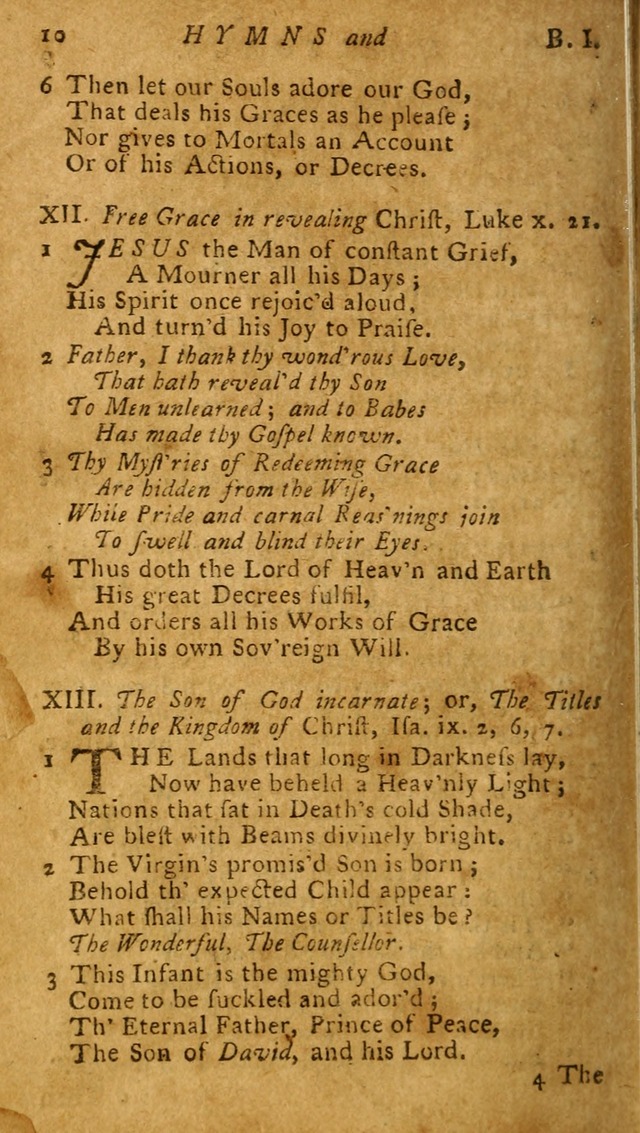 10 HYMNS and B. I.
6 Then let our Souls adore our God,
That deals his Graces as he pleaſe;
Nor gives to Mortals an Account
Or of his Actions, or Decrees.
XII. Free Grace in revealing Chriſt, Luke x. 21.
1 JESUS the Man of conſtant Grief,
A Mourner all his Days;
His Spirit once rejoic'd aloud,
And turn'd his Joy to Praiſe.
2 Father, I thank thy wond'rous Love,
That hath reveal'd thy Son
To Men unlearned; and to Babes
Has made thy Goſpel known.
3 Thy Myſt'ries of Redeeming Grace
Are hidden from the Wiſe,
While Pride and carnal Reas'nings join
To ſwell and blind their Eyes.
4 Thus doth the Lord of Heav'n and Earth
His great Decrees fulfil,
And orders all his Works of Grace
By his own Sov'reign Will.
XIII. The Son of God incarnate; or, The Titles
and the Kingdom of Chriſt, Iſa. ix. 2, 6, 7.
1 THE Lands that long in Darkneſs lay,
Now have beheld a Heav'nly Light;
Nations that ſat in Death's cold Shade,
Are bleſt with Beams divinely bright.
2 The Virgin's promis'd Son is born;
Behold th' expected Child appear:
What ſhall his Names or Titles be?
The Wonderful, The Counſellor.
3 This Infant is the mighty God,
Come to be ſuckled and ador'd;
Th' Eternal Father, Prince of Peace,
The Son of David, and his Lord.
4 The